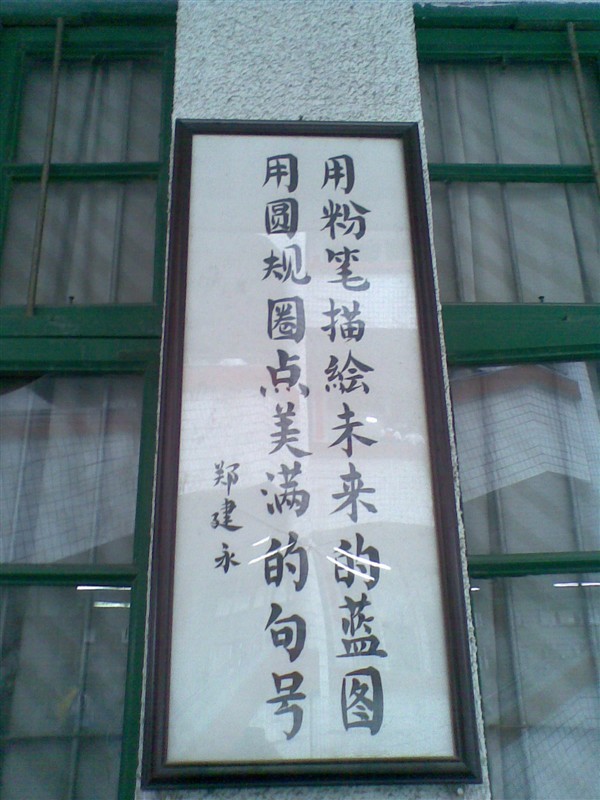 用粉笔描绘未来的蓝图
用圆规圈点美满的句号
郑建永